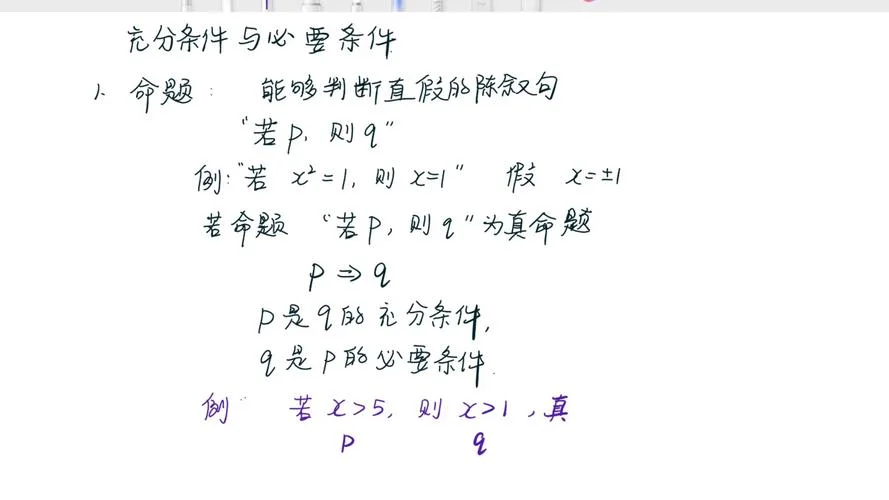 充分条件与必要条件
1. 命题: 能够判断真假的陈叙句
"若p, 则q"
例:"若 x²=1, 则 x=1" 假 x=±1
若命题 "若p, 则q"为真命题
p⇒q
p是q的充分条件,
q是p的必要条件.
例: 若x>5, 则x>1, 真
p q